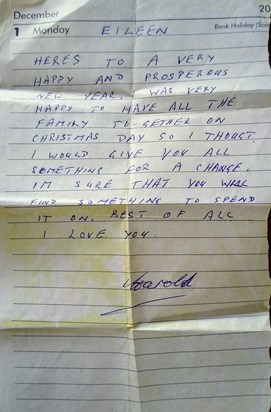 December 20
1 Monday Bank Holiday (Sco
EILEEN
HERES TO A VERY
HAPPY AND PROSPEROUS
NEW YEAR. WAS VERY
HAPPY TO HAVE ALL THE
FAMILY TO-GETHER ON
CHRISTMAS DAY SO I THOUGT.
I WOULD GIVE YOU ALL
SOMETHING FOR A CHANGE.
IM SURE THAT YOU WILL
FIND SOMETHING TO SPEND
IT ON. BEST OF ALL
I LOVE YOU.
Harold